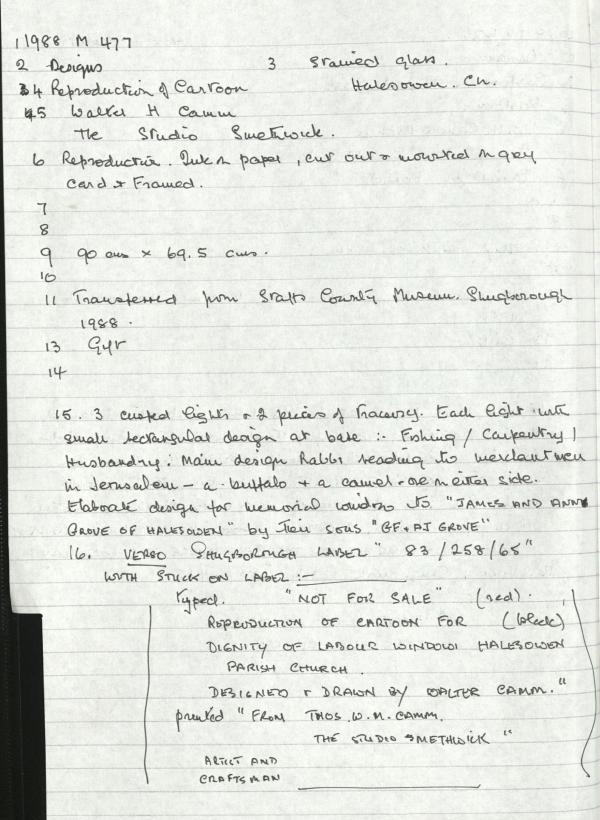 1 1988 M 477
2 Designs 3 Stained glass.
4 Reproduction of Cartoon Halesowen. Ch.
5 Walter H Camm
The Studio Smethwick.
6 Reproduction. Ink on paper, cut out & mounted on grey
card & Framed.
7
8
9 90 cms × 69.5 cms.
10
11 Transferred from Staffs County Museum. Shugborough
1988.
13 Gift
14
15. 3 cusped lights & 2 pieces of tracery. Each light with
small rectangular design at base :- Fishing / Carpentry /
Husbandry: Main design Rabbi reading to merchantmen
in Jerusalem - a buffalo & a camel - one on either side.
Elaborate design for memorial window to "JAMES AND ANN
GROVE OF HALESOWEN" by their sons "GF & AJ GROVE"
16. VERSO SHUGBOROUGH LABEL " 83/258/65"
WITH STUCK ON LABEL :-
Typed. "NOT FOR SALE" (red).
REPRODUCTION OF CARTOON FOR (black)
DIGNITY OF LABOUR WINDOW HALESOWEN
PARISH CHURCH.
DESIGNED & DRAWN BY WALTER CAMM."
printed "FROM THOS. W. M. CAMM.
THE STUDIO SMETHWICK "
ARTIST AND
CRAFTSMAN